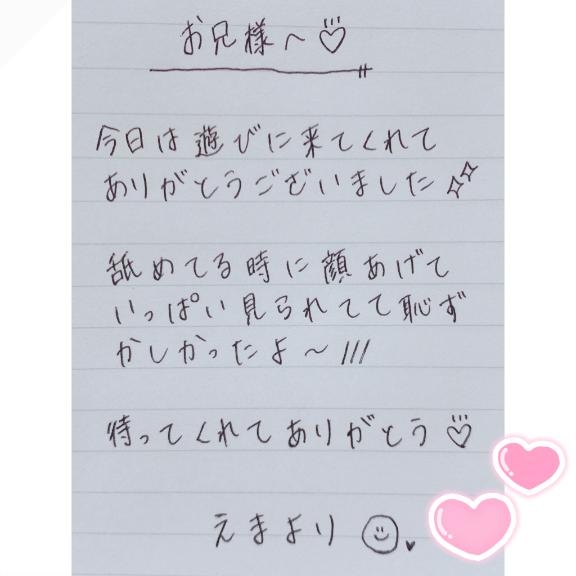 お兄様へ♡
今日は遊びに来てくれて
ありがとうございました✨
舐めてる時に顔あげて
いっぱい見られてて恥ず
かしかったよ〜///
待っててくれてありがとう♡
えまより☺♥